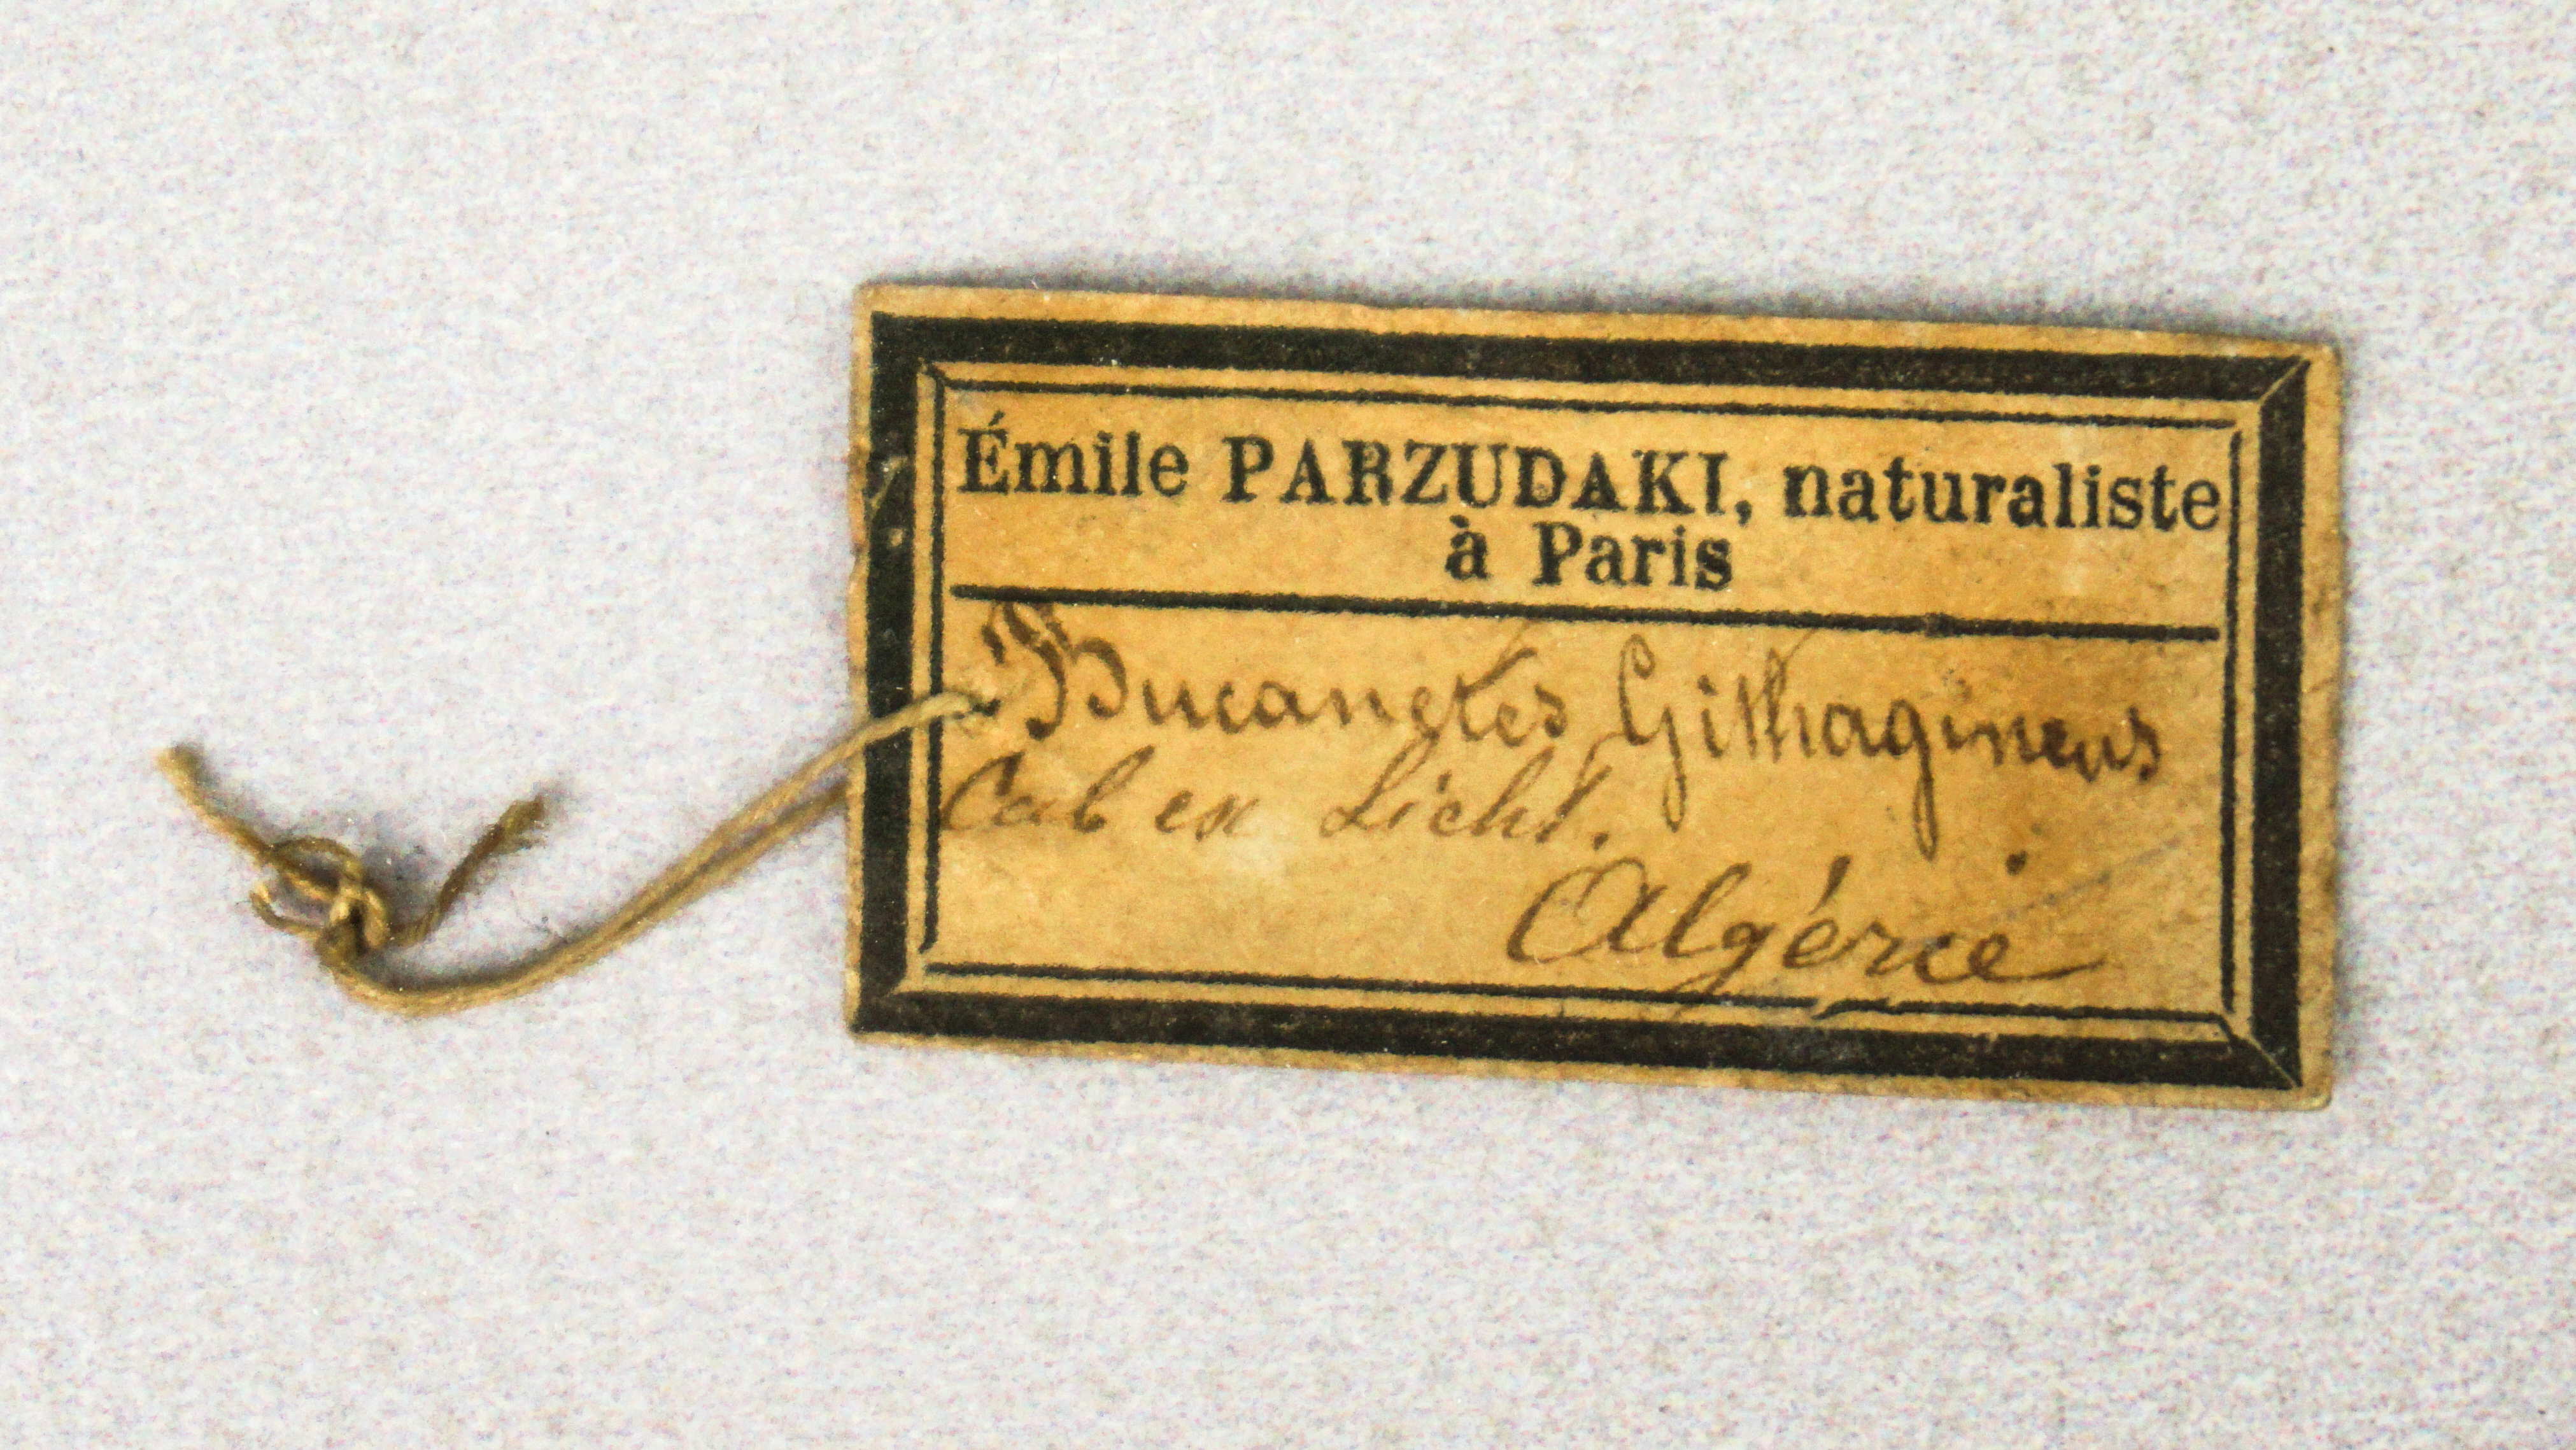 Émile PARZUDAKI, naturaliste
à Paris
Bucanetes Githagineus
Cab ex Licht.
Algérie